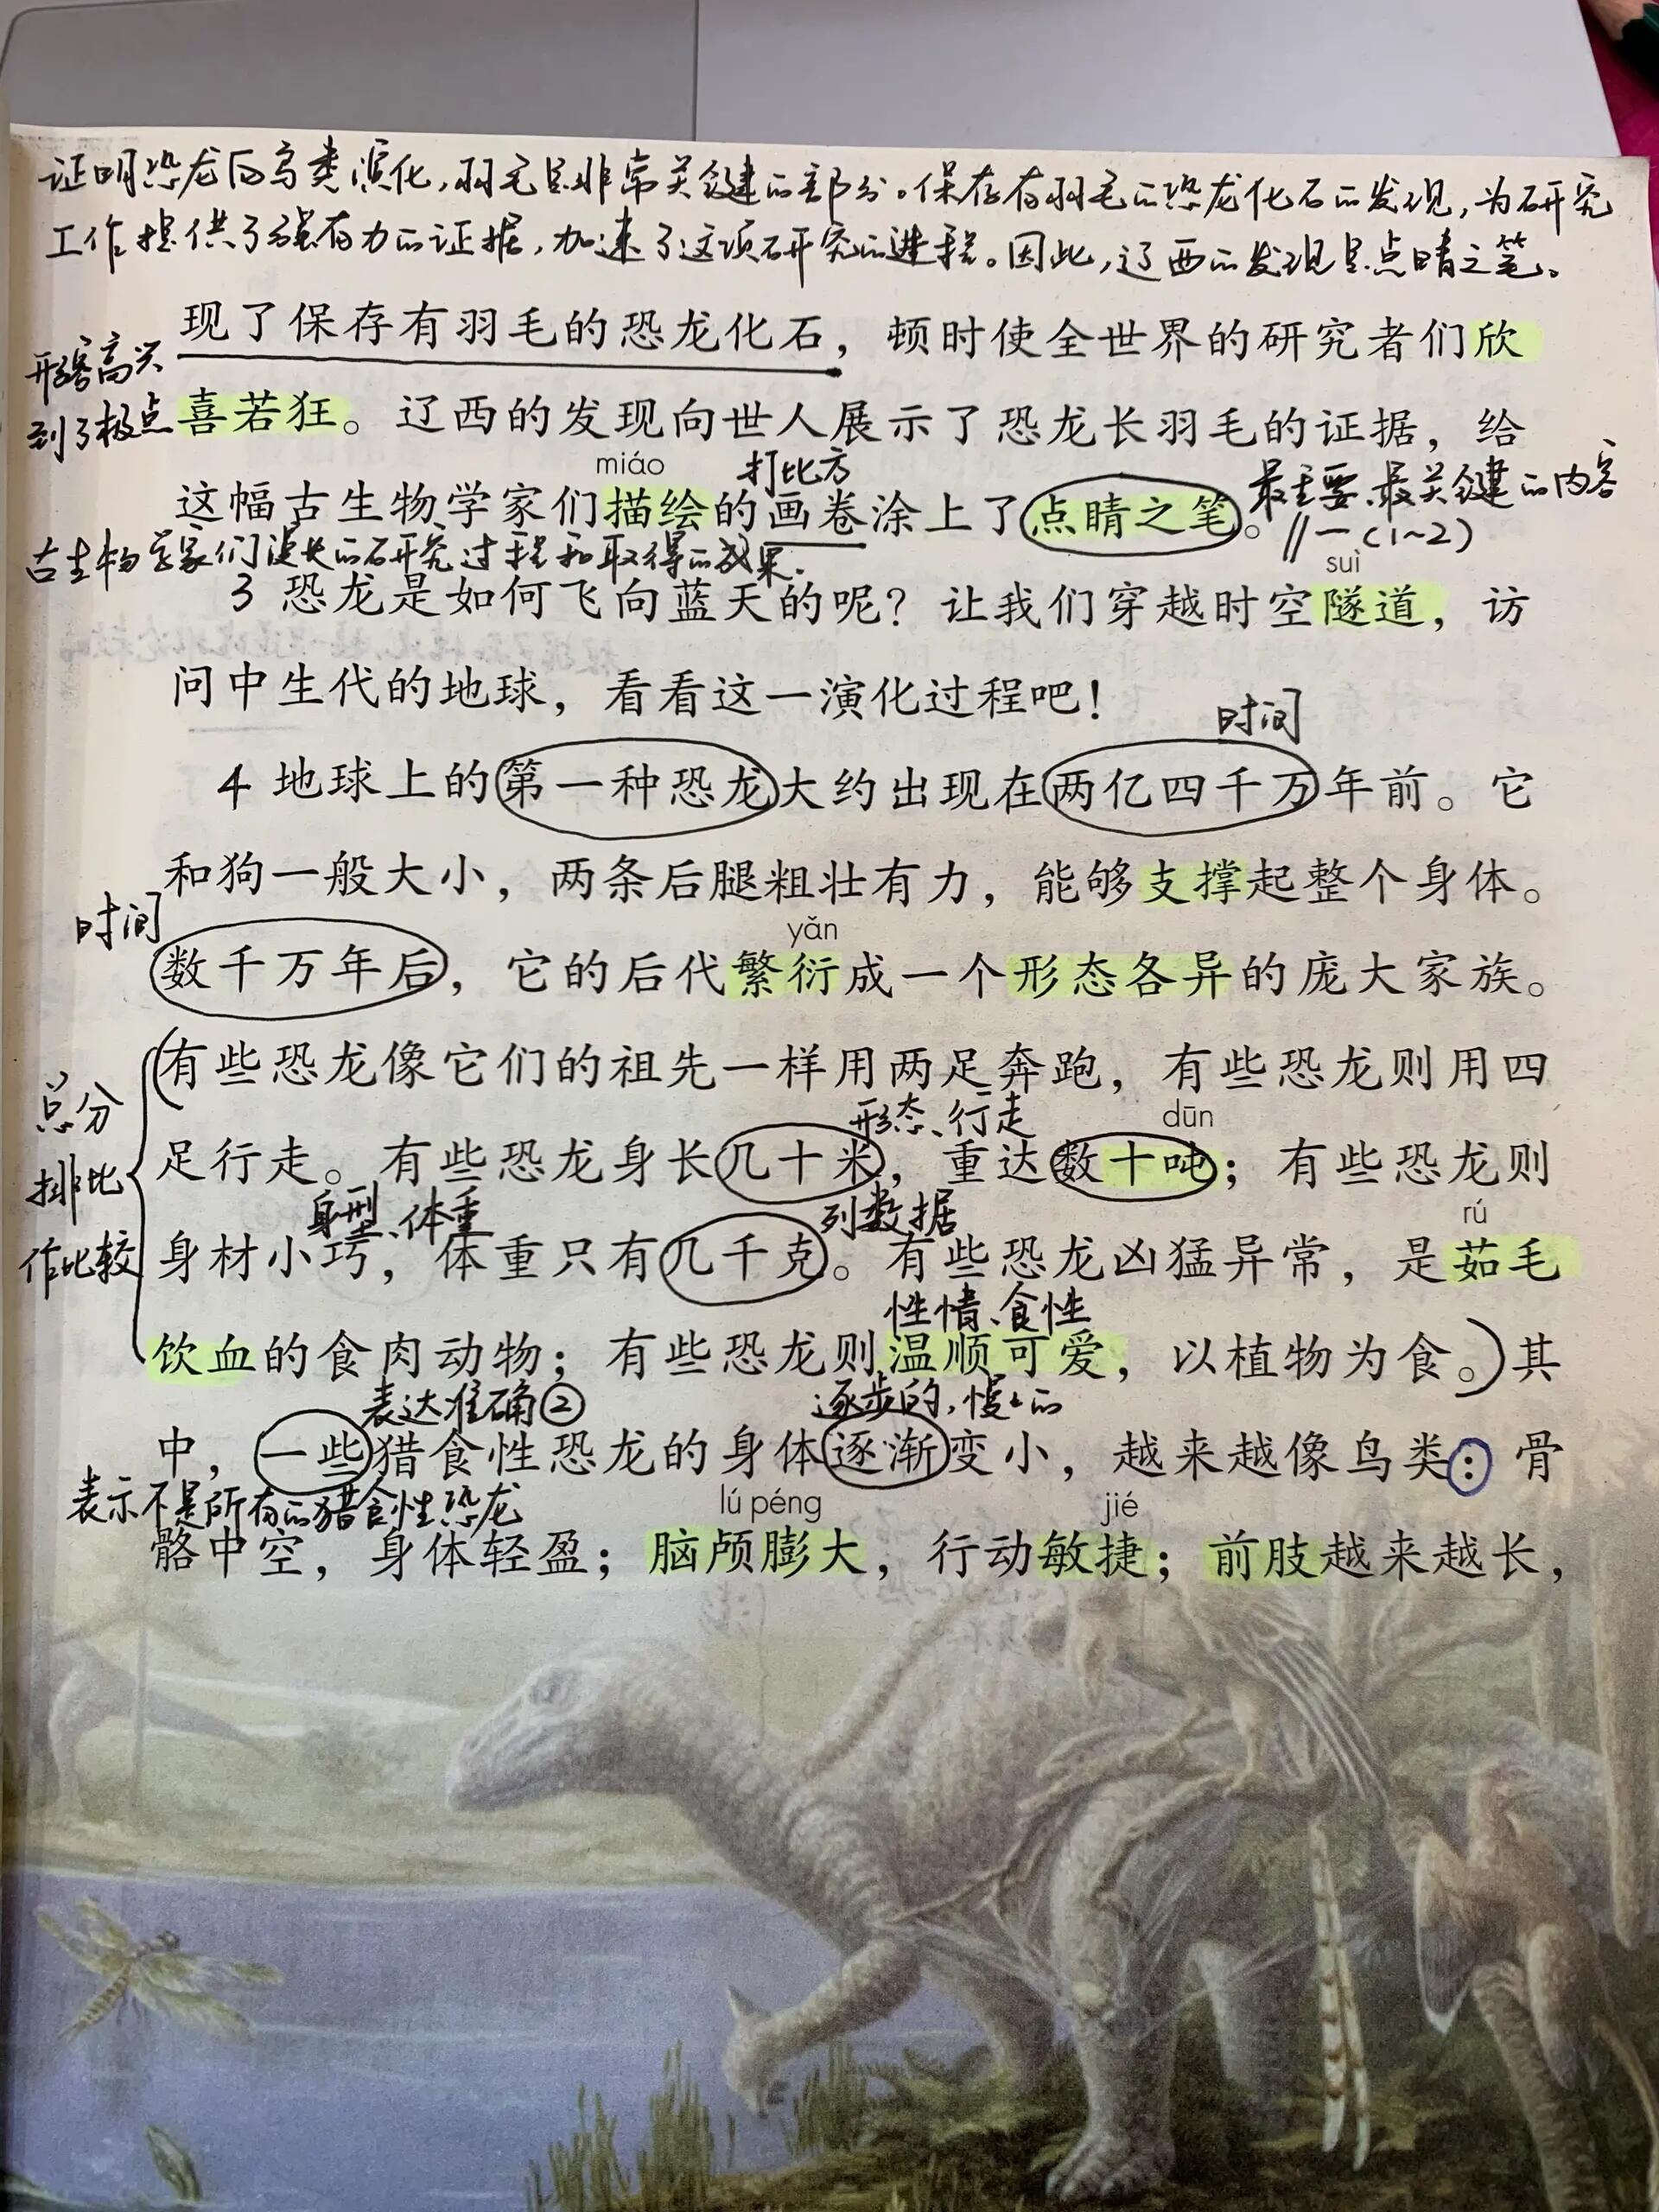 证明恐龙向鸟类演化,羽毛是非常关键的部分。保存有羽毛的恐龙化石的发现,为研究
工作提供了强有力的证据,加速了这项研究的进程。因此,辽西的发现是点睛之笔。
现了保存有羽毛的恐龙化石，顿时使全世界的研究者们欣
形容高兴
到了极点
喜若狂。辽西的发现向世人展示了恐龙长羽毛的证据，给
miáo
打比方
这幅古生物学家们描绘的画卷涂上了点睛之笔。
最主要、最关键的内容
∥一(1~2)
古生物学家们漫长的研究过程和取得的成果.
suì
3 恐龙是如何飞向蓝天的呢？让我们穿越时空隧道，访
问中生代的地球，看看这一演化过程吧！
时间
4 地球上的第一种恐龙大约出现在两亿四千万年前。它
和狗一般大小，两条后腿粗壮有力，能够支撑起整个身体。
时间
yǎn
数千万年后，它的后代繁衍成一个形态各异的庞大家族。
有些恐龙像它们的祖先一样用两足奔跑，有些恐龙则用四
总分
形态、行走
dūn
足行走。有些恐龙身长几十米，重达数十吨；有些恐龙则
排比
身型、体重
列数据
rú
身材小巧，体重只有几千克。有些恐龙凶猛异常，是茹毛
作比较
性情、食性
饮血的食肉动物；有些恐龙则温顺可爱，以植物为食。)其
表达准确②
逐步的,慢慢的
中，一些猎食性恐龙的身体逐渐变小，越来越像鸟类：骨
表示不是所有的猎食性恐龙
lú péng
jié
骼中空，身体轻盈；脑颅膨大，行动敏捷；前肢越来越长，